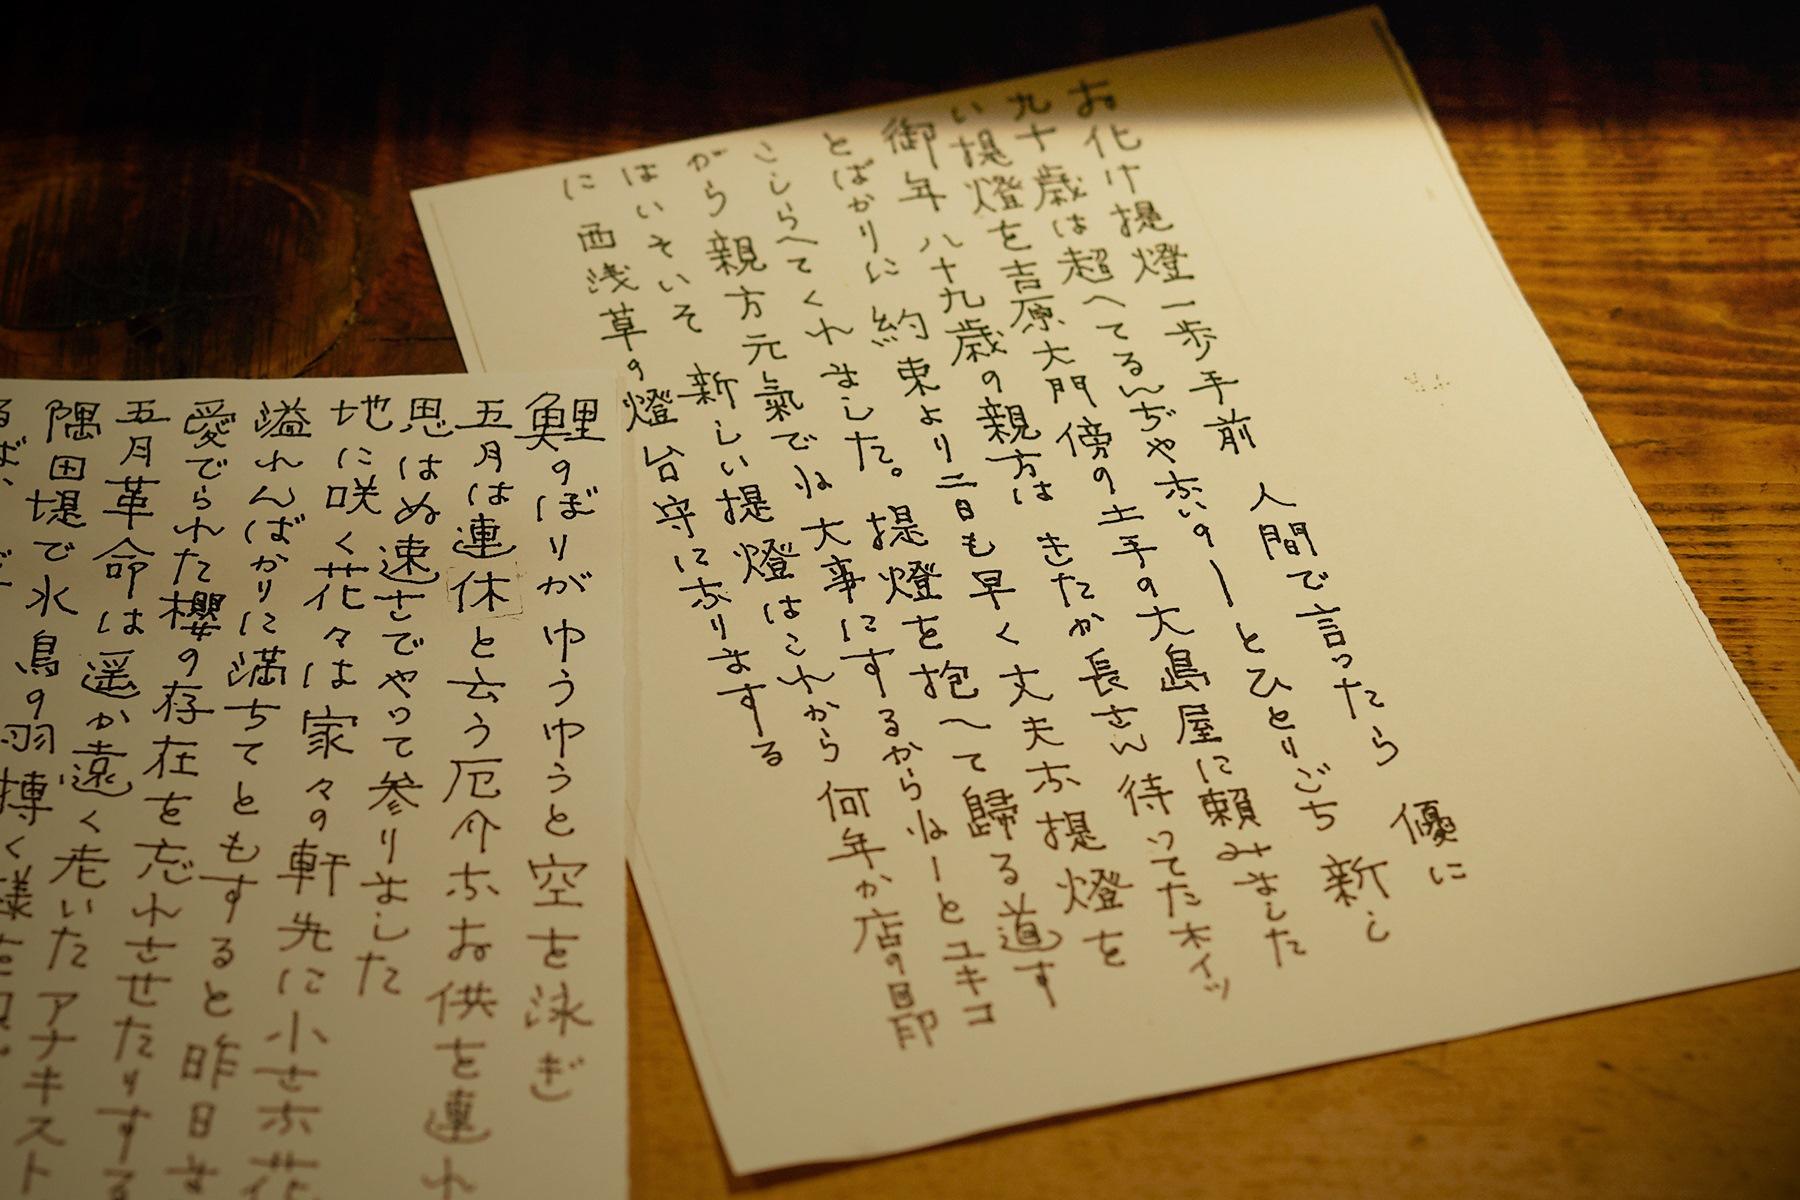 お化け提燈一歩手前 人間で言ったら 優に
九十歳は超へてるんぢやないのーとひとりごち 新し
い提燈を吉原大門傍の土手の大島屋に賴みました
御年八十九歳の親方は きたか長さん 待ってたホイッ
とばかりに 約束より二日も早く丈夫な提燈を
こしらへてくれました。提燈を抱へて歸る道す
がら 親方元氣でね大事にするからねーとユキコ
はいそいそ 新しい提燈はこれから 何年か店の目印
に 西浅草の燈台守になりまする
鯉のぼりがゆうゆうと空を泳ぎ
五月は連休と云う厄介なお供を連れ
思はぬ速さでやって参りました
地に咲く花々は家々の軒先に小さな花
溢れんばかりに満ちてともすると昨日ま
愛でられた櫻の存在を忘れさせたりする
五月革命は遥か遠く老いたアナキスト
隅田堤で水鳥の羽搏く様を